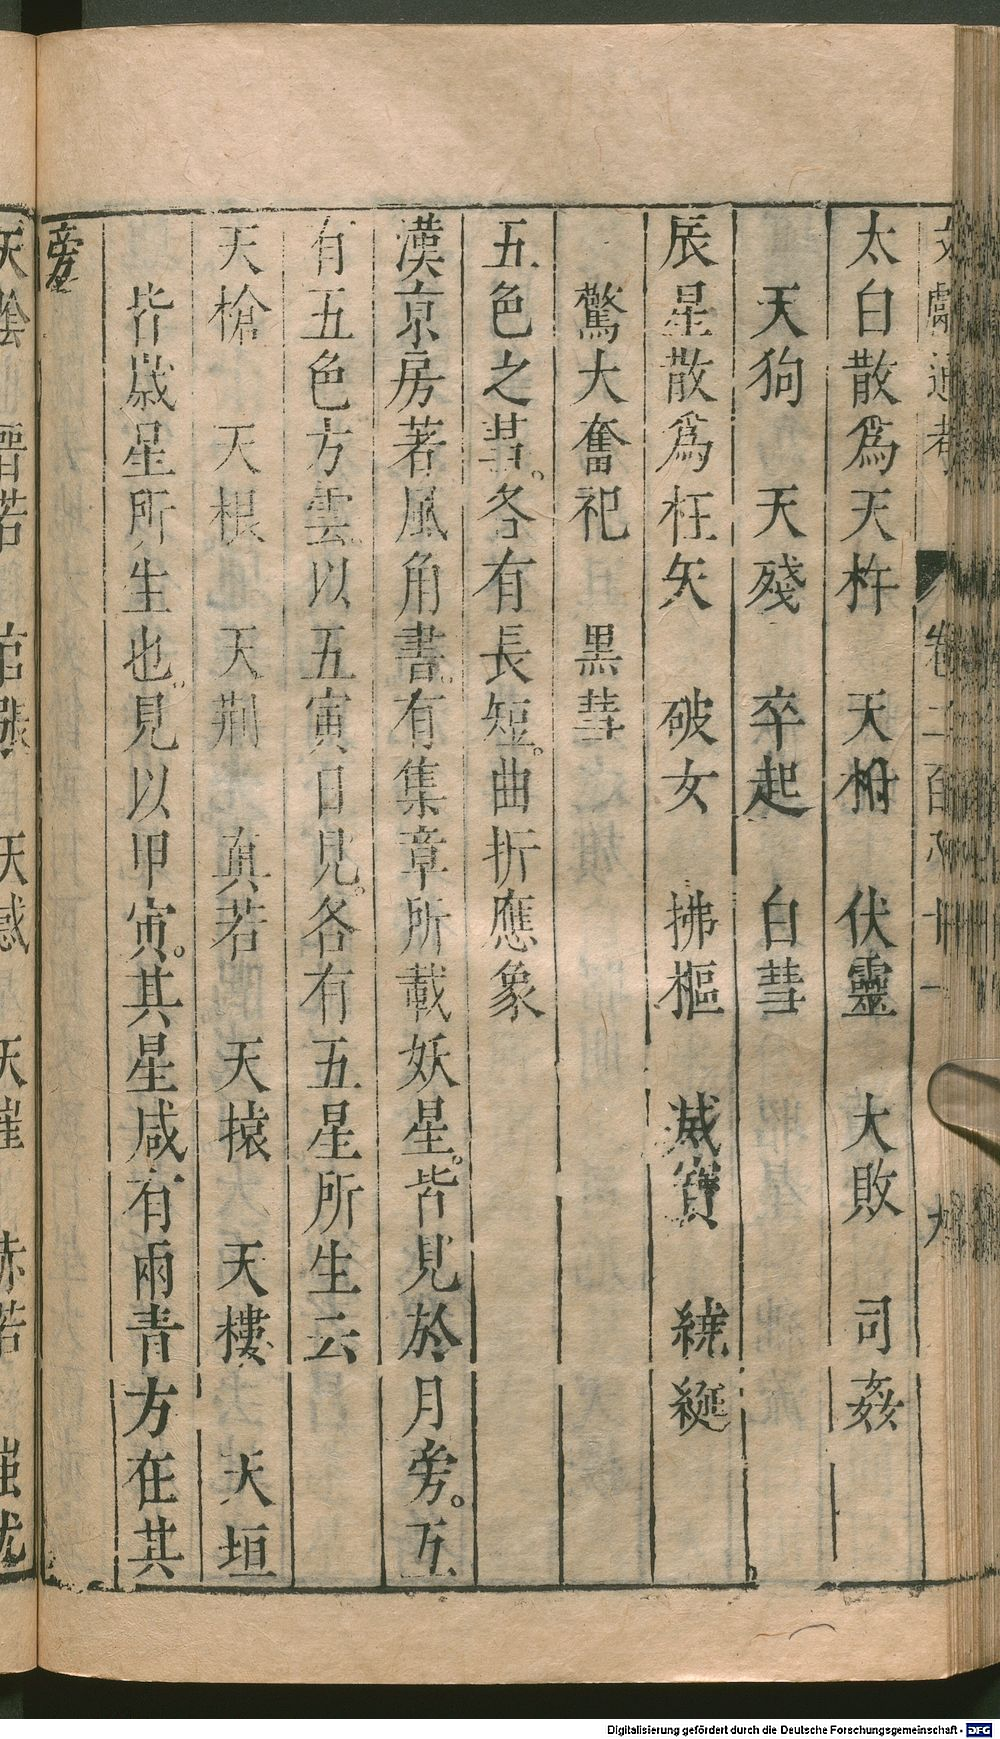 文獻通考 卷二百八十一 九
太白散爲天杵 天柎 伏靈 大敗 司姦
天狗 天殘 卒起 白彗
辰星散爲枉矢 破女 拂樞 滅寶 繞綖
驚大奮祀 黑彗
五色之彗。各有長短。曲折應象
漢京房著風角書。有集章所載妖星。皆見於月旁。互
有五色方雲以五寅日見。各有五星所生云
天槍 天根 天荆 眞若 天猿 天樓 天垣
皆歲星所生也。見以甲寅。其星咸有兩青方在其
旁
天陰 晉若 官張 天惑 天崔 赤若 蚩尤
Digitalisierung gefördert durch die Deutsche Forschungsgemeinschaft - DFG